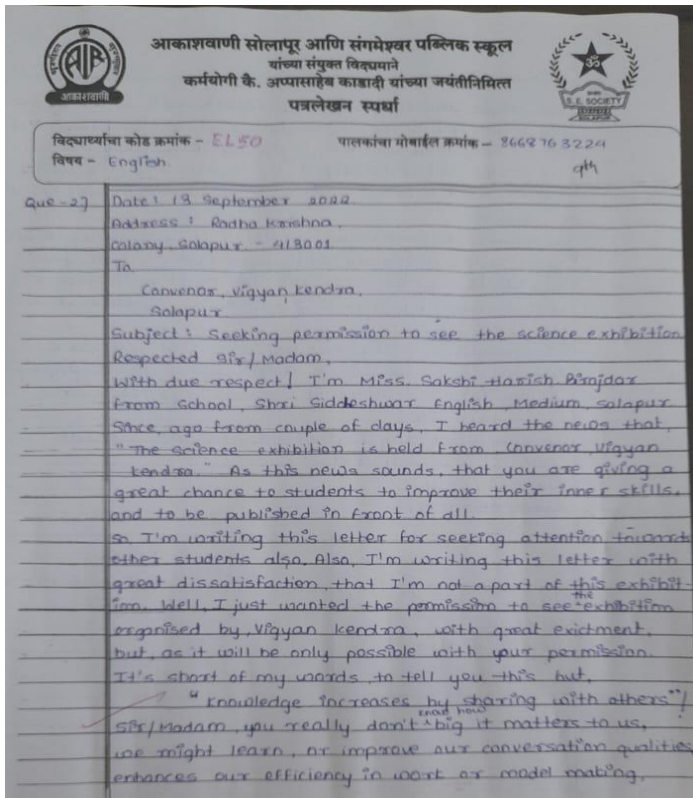 आकाशवाणी सोलापूर आणि संगमेश्वर पब्लिक स्कूल
यांच्या संयुक्त विद्यमाने
कर्मयोगी कै. अप्पासाहेब काडादी यांच्या जयंतीनिमित्त
पत्रलेखन स्पर्धा
AIR
आकाशवाणी
ॐ
S. E. SOCIETY
विद्यार्थ्याचा कोड क्रमांक - EL50 पालकांचा मोबाईल क्रमांक - 8668763224
विषय - English. 9th
Que-27 Date: 13 September 2022.
Address: Radha Krishna,
colony, Solapur - 413001
To
Convenor, vigyan kendra,
Solapur
Subject: Seeking permission to see the science exhibition
Respected Sir/Madam,
With due respect! I'm Miss. Sakshi Harish Birajdar
from School, Shri Siddeshwar English, Medium, Solapur
Since, ago from couple of days, I heard the news that,
"The science exhibition is held from, Convenor, Vigyan
kendra." As this news sounds, that you are giving a
great chance to students to improve their inner skills,
and to be published in front of all.
So, I'm writing this letter for seeking attention towards
other students also, Also, I'm writing this letter with
great dissatisfaction, that I'm not a part of this exhibit-
ion. Well, I just wanted the permission to see the exhibition
organised by, Vigyan kendra, with great exictment,
but, as it will be only possible with your permission.
It's short of my words, to tell you this but,
"knowledge increases by sharing with others"!
Sir/Madam, you really don't how big it matters to us,
we might learn, or improve our conversation qualities
enhances our efficiency in work or model making,